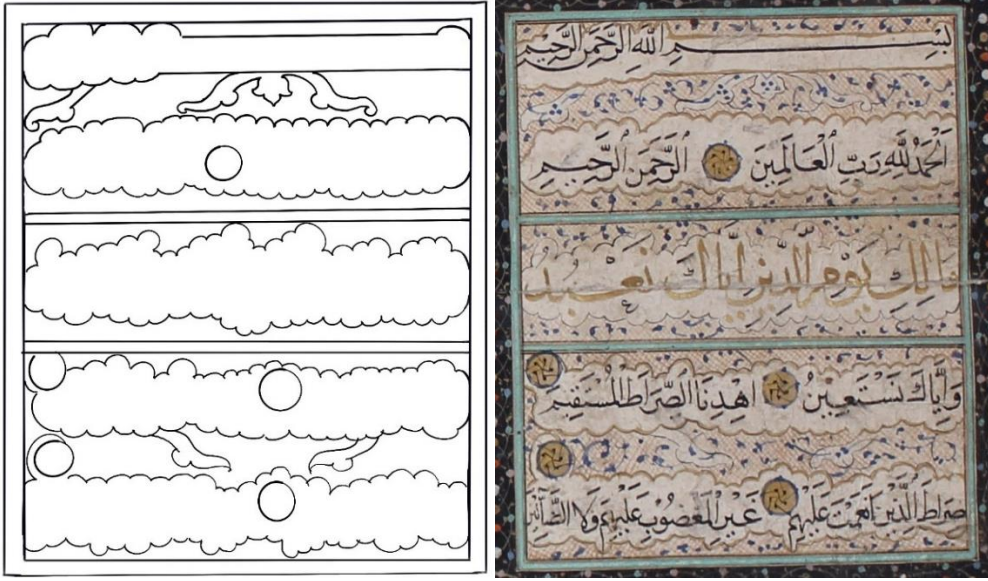 بِسْمِ اللهِ الرَّحْمَنِ الرَّحِيمِ
اَلْحَمْدُ لِلَّهِ رَبِّ الْعَالَمِينَ الرَّحْمَنِ الرَّحِيمِ
مَالِكِ يَوْمِ الدِّينِ إِيَّاكَ نَعْبُدُ
وَإِيَّاكَ نَسْتَعِينُ اهْدِنَا الصِّرَاطَ الْمُسْتَقِيمَ
صِرَاطَ الَّذِينَ أَنْعَمْتَ عَلَيْهِمْ غَيْرِ الْمَغْضُوبِ عَلَيْهِمْ وَلَا الضَّالِّينَ